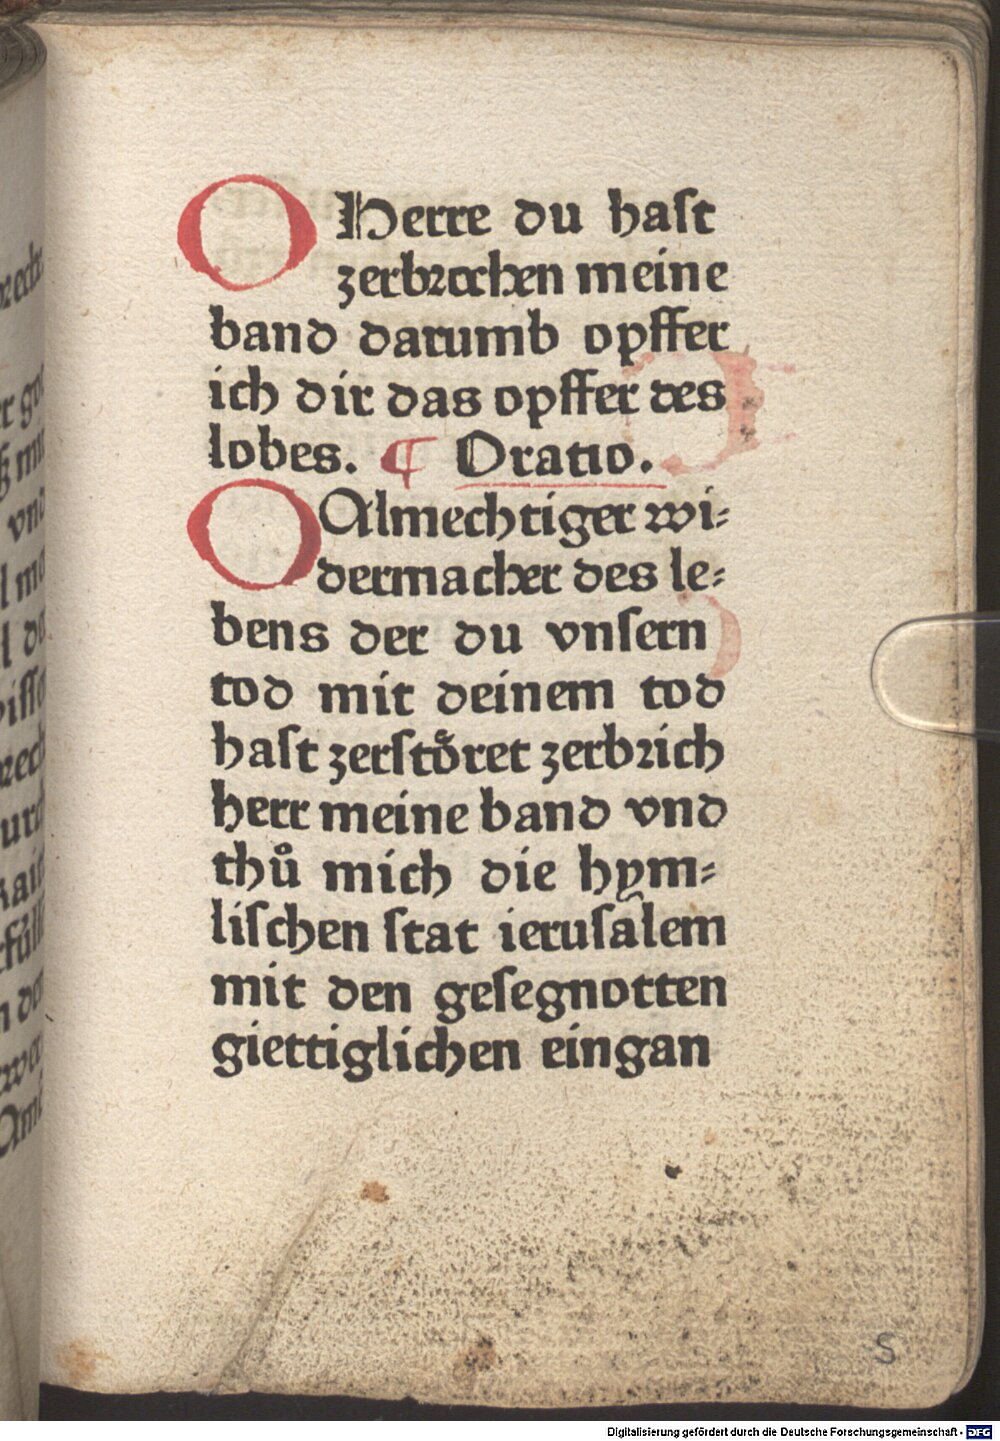 O Herre du haſt
zerbrochen meine
band darumb opffer
ich dir das opffer des
lobes. ¶ Oratio.
O Almechtiger wi⸗
dermacher des le⸗
bens der du vnſern
tod mit deinem tod
haſt zerſtoͤret zerbrich
herr meine band vnd
thuͦ mich die hym⸗
liſchen ſtat ieruſalem
mit den geſegnotten
giettiglichen eingan
S
Digitalisierung gefördert durch die Deutsche Forschungsgemeinschaft - DFG